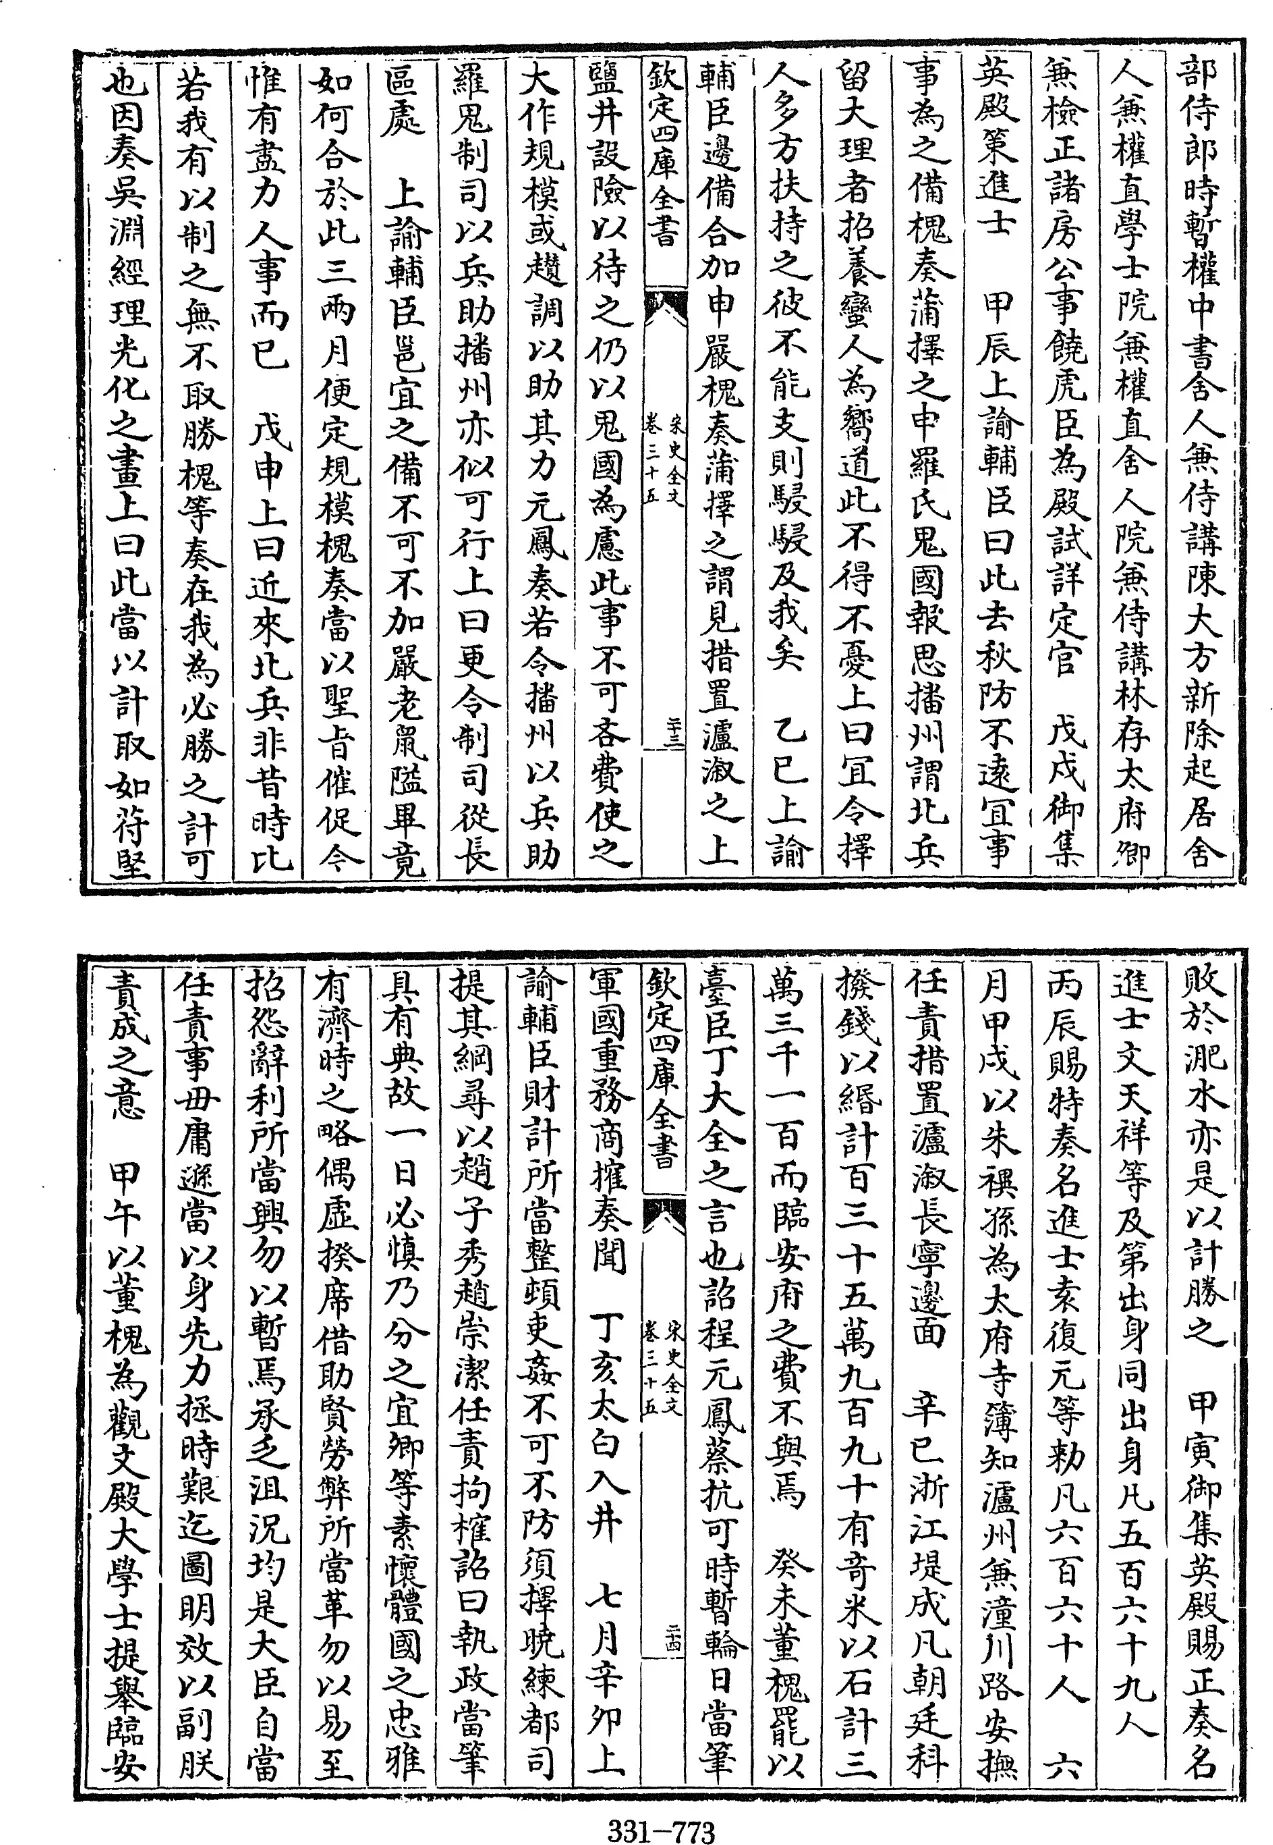 部侍郎時暫權中書舍人兼侍講陳大方新除起居舍
人兼權直學士院兼權直舍人院兼侍講林存太府卿
兼檢正諸房公事饒虎臣為殿試詳定官　戊戌御集
英殿策進士　甲辰上諭輔臣曰此去秋防不遠宜事
事為之備槐奏蒲擇之申羅氏鬼國報思播州謂北兵
留大理者招養蠻人為嚮道此不得不憂上曰宜令擇
人多方扶持之彼不能支則駸駸及我矣　乙巳上諭
輔臣邊備合加申嚴槐奏蒲擇之謂見措置瀘溆之上
欽定四庫全書
宋史全文
卷三十五
二十三
鹽井設險以待之仍以鬼國為慮此事不可吝費使之
大作規模或趲調以助其力元鳳奏若令播州以兵助
羅鬼制司以兵助播州亦似可行上曰更令制司從長
區處　上諭輔臣邕宜之備不可不加嚴老鼠隘畢竟
如何合於此三兩月便定規模槐奏當以聖旨催促令
惟有盡力人事而已　戊申上曰近來北兵非昔時比
若我有以制之無不取勝槐等奏在我為必勝之計可
也因奏吳淵經理光化之畫上曰此當以計取如苻堅
敗於淝水亦是以計勝之　甲寅御集英殿賜正奏名
進士文天祥等及第出身同出身凡五百六十九人
丙辰賜特奏名進士袁復元等勑凡六百六十人　六
月甲戌以朱禩孫為太府寺簿知瀘州兼潼川路安撫
任責措置瀘溆長寧邊面　辛巳浙江堤成凡朝廷科
撥錢以緡計百三十五萬九百九十有奇米以石計三
萬三千一百而臨安府之費不與焉　癸未董槐罷以
臺臣丁大全之言也詔程元鳳蔡抗可時暫輪日當筆
欽定四庫全書
宋史全文
卷三十五
二十四
軍國重務商搉奏聞　丁亥太白入井　七月辛卯上
諭輔臣財計所當整頓吏姦不可不防須擇曉練都司
提其綱尋以趙子秀趙崇潔任責拘榷詔曰執政當筆
具有典故一日必慎乃分之宜卿等素懷體國之忠雅
有濟時之略偶虛揆席借助賢勞弊所當革勿以易至
招怨辭利所當興勿以暫焉承乏沮況均是大臣自當
任責事毋庸遜當以身先力拯時艱迄圖明效以副朕
責成之意　甲午以董槐為觀文殿大學士提舉臨安
331-773